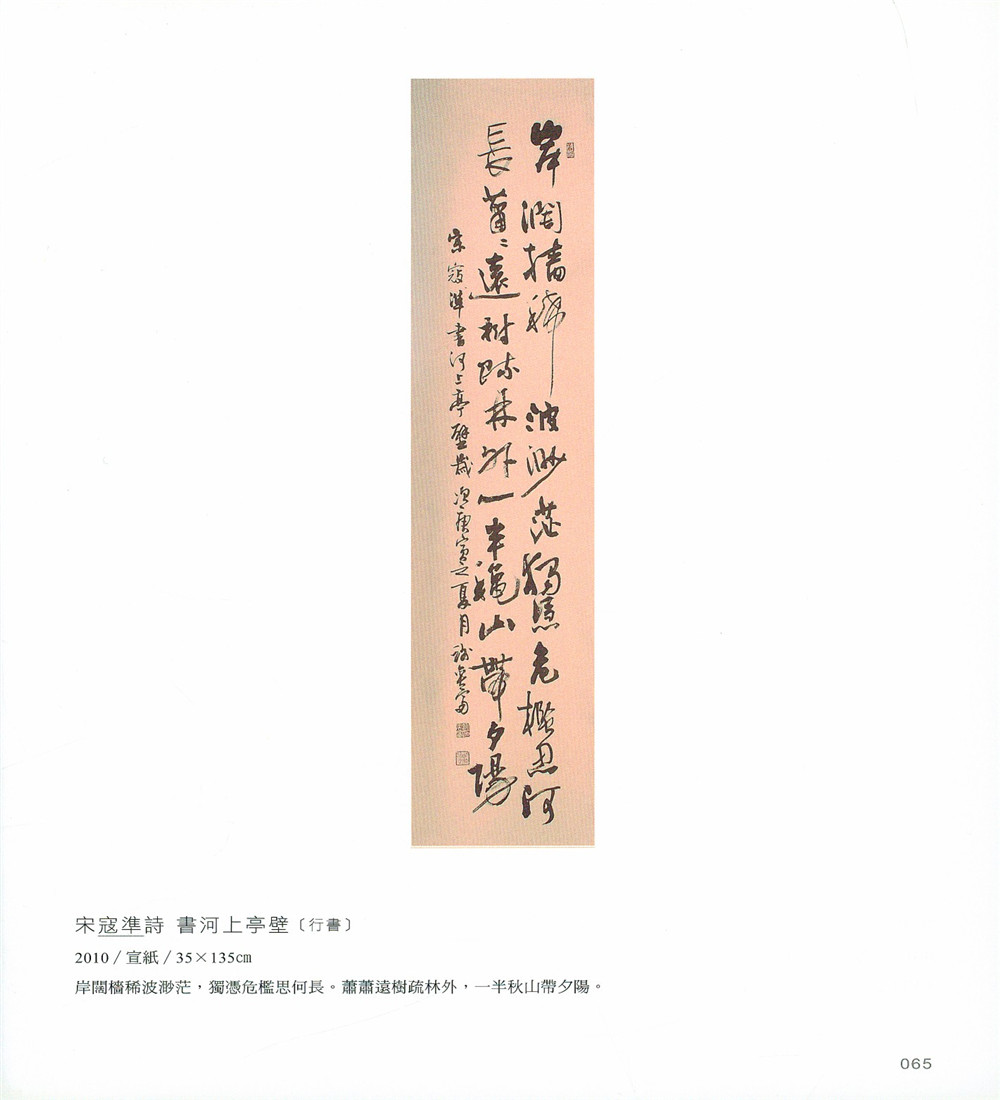 岸濶檣稀波渺茫獨憑危檻思何
長蕭〻遠樹疎林外一半龝山帶夕陽
宋寇準書河上亭壁歲次庚寅之夏月
宋寇準詩 書河上亭壁〔行書〕
2010/宣紙/35×135㎝
岸闊檣稀波渺茫，獨憑危檻思何長。蕭蕭遠樹疏林外，一半秋山帶夕陽。
065